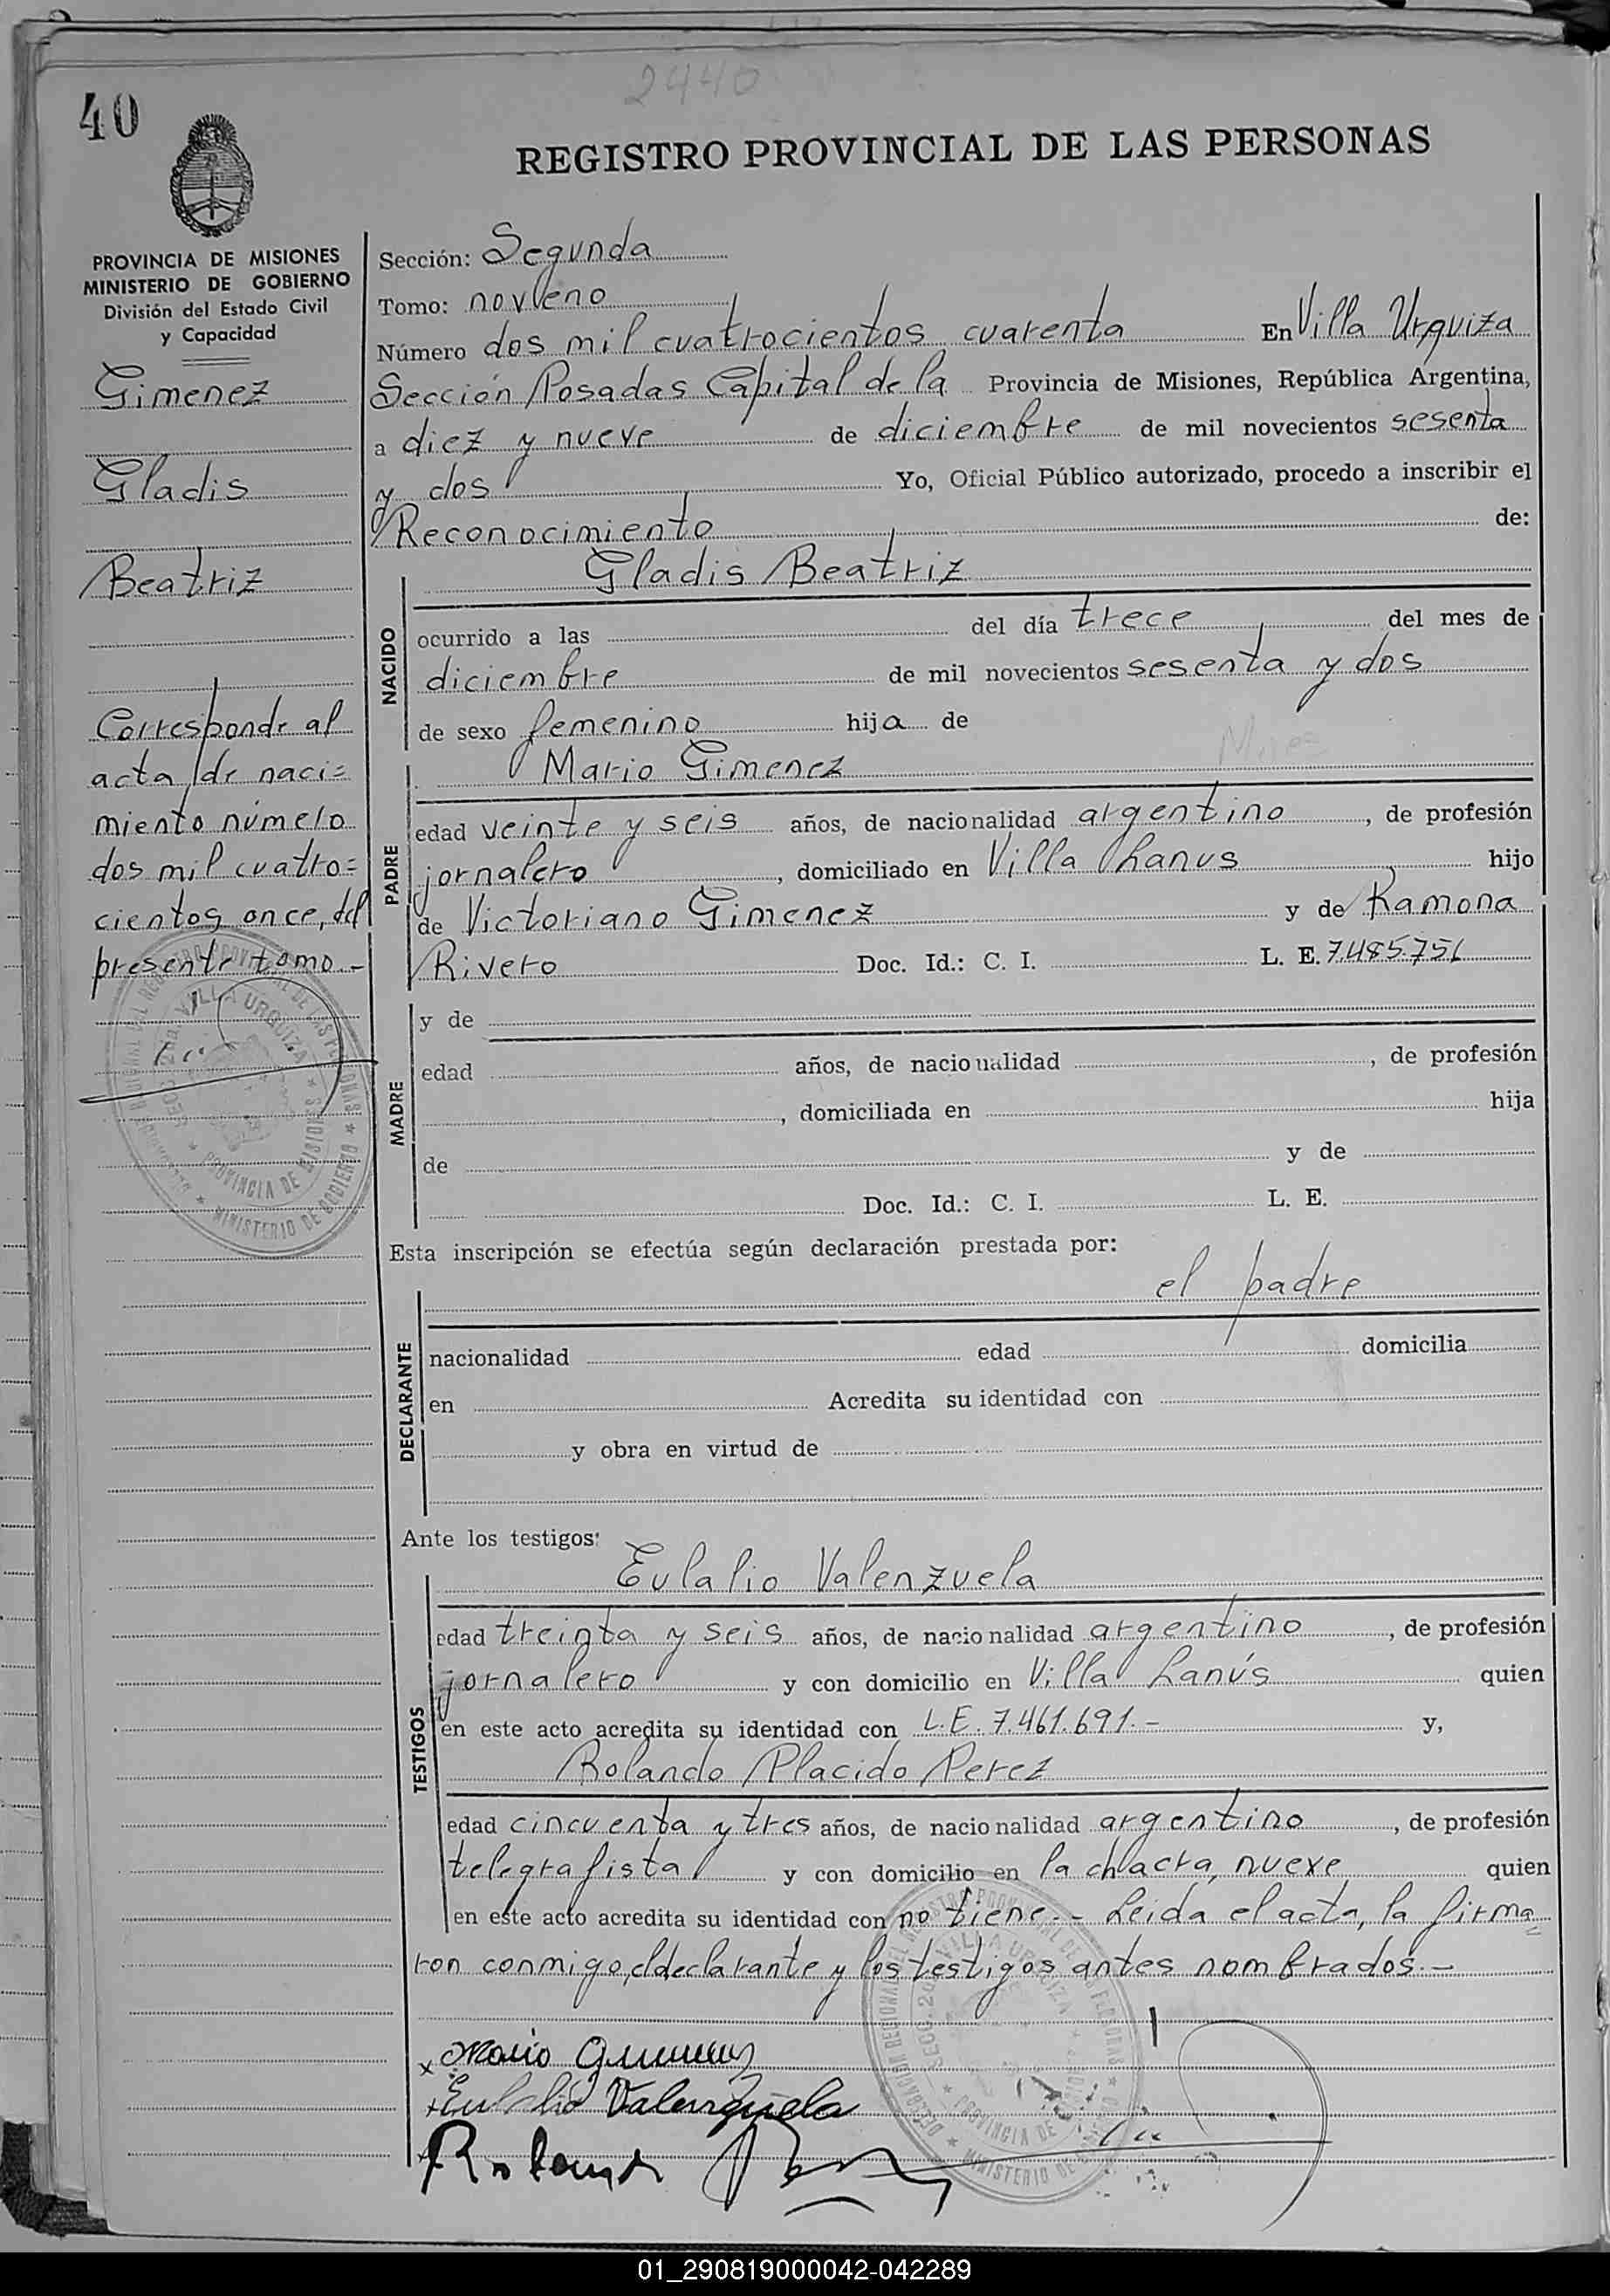 2440
40
REGISTRO PROVINCIAL DE LAS PERSONAS
PROVINCIA DE MISIONES
MINISTERIO DE GOBIERNO
División del Estado Civil
y Capacidad
Gimenez
Gladis
Beatriz
Corresponde al
acta de naci=
miento número
dos mil cuatro=
cientos once, del
presente tomo.-
Sección: Segunda
Tomo: noveno
Número dos mil cuatrocientos cuarenta En Villa Urquiza
Sección Posadas Capital de la Provincia de Misiones, República Argentina,
a diez y nueve de diciembre de mil novecientos sesenta
y dos Yo, Oficial Público autorizado, procedo a inscribir el
Reconocimiento de:
Gladis Beatriz
NACIDO
ocurrido a las del día trece del mes de
diciembre de mil novecientos sesenta y dos
de sexo femenino hija de
Mario Gimenez
PADRE
edad veinte y seis años, de nacionalidad argentino, de profesión
jornalero, domiciliado en Villa Lanus hijo
de Victoriano Gimenez y de Ramona
Rivero Doc. Id.: C. I. L. E. 7.485.756
MADRE
y de
edad años, de nacionalidad , de profesión
, domiciliada en hija
de y de
Doc. Id.: C. I. L. E.
Esta inscripción se efectúa según declaración prestada por:
el padre
DECLARANTE
nacionalidad edad domicilia
en Acredita su identidad con
y obra en virtud de
Ante los testigos:
Eulalio Valenzuela
TESTIGOS
edad treinta y seis años, de nacionalidad argentino, de profesión
jornalero y con domicilio en Villa Lanús quien
en este acto acredita su identidad con L.E. 7.461.691.- y,
Rolando Placido Perez
edad cincuenta y tres años, de nacionalidad argentino, de profesión
telegrafista y con domicilio en la chacra nueve quien
en este acto acredita su identidad con no tiene.- Leida el acta, la firma
ron conmigo, el declarante y los testigos antes nombrados.-
x Mario Gimenez
Eulalio Valenzuela
Rolando
VILLA URQUIZA
PROVINCIA DE MISIONES
MINISTERIO DE GOBIERNO
01_290819000042-042289